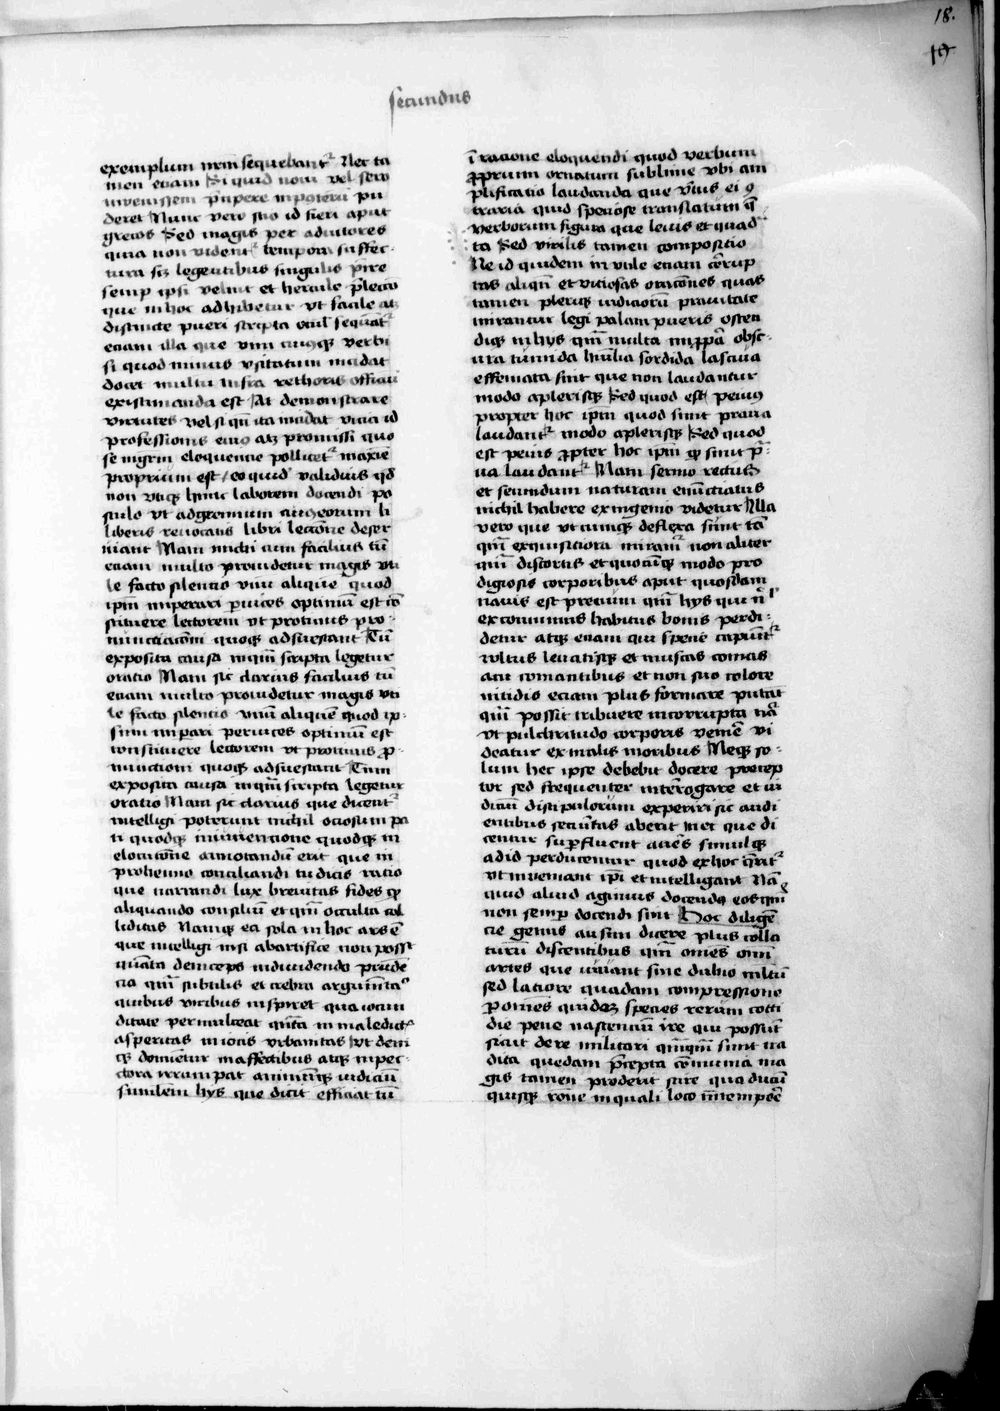 18.
19
secundus
exemplum nem̄ sequebant᷑ Nec ta
men etiam Si quid noui vel sero
inuenissem p̄cipere in poterū pu
deret Nunc vero scio id fieri aput
grecos Sed magis per adiutores
quia non vident᷑ tempora suffec-
tura siꝫ legentibus singulis p̄ire
semꝑ ipsi velint et hercule p̄lectio
que in hoc adhibetur vt facile atꝫ
distincte pueri scripta ocul̄ sequāt᷑
etiam illa que vim cuiusqꝫ verbi
si quod minus vsitatum incidat
docet multū infra rethoris officiū
existimanda est At demonstrare
virtutes vel si qn̄ ita incidat vicia id
professionis eiꝯ atꝫ promissi quo
se mgr̄m eloquencie pollicet᷑ maxīe
proprium est / eo quid validius qd̄
non vtiqꝫ hunc laborem docendi po
stulo vt ad gremium
liberis reuocatis libri lectiōne deser
uiant Nam michi cum facilius tū
etiam multo prouidetur magis vti
le facto silentio vnū aliquē quod
ip̄m imperari ꝑ vices optimū est cō
stituere lectorem vt protinus pro-
nunctiacōni quoqꝫ adsuescant Tū
exposita causa in quā scripta legetur
oratio Nam sic clarius facilius tū
etiam multo prouidetur magis vti
le facto silentio vnū aliquē quod ip-
sum imꝑari per vices optimū est
constituere lectorem vt protinus ꝓ-
nunctioni quoqꝫ adsuescant Tum
exposita causa in quā scripta legetur
oratio Nam sic clarius que dicent᷑
intelligi poterunt nichil ociosum pa
ti quodqꝫ in inuentione quodqꝫ in
elocucōne annotandū erit que in
prohemio conciliandi iudicis ratio
que narrandi lux breuitas fides qꝫ
aliquando consiliū et qm̄ occulta cal
liditas Namqꝫ ea sola in hoc ars ē
que intelligi nisi ab artifice non posst
quāta deinceps in diuidendo prudē
cia qm̄ subtilis et crebra argumētaᵒ
quibus viribus inspiret qua iocun
ditate permulceat qn̄ta in maledictꝭ
asperitas in iocis vrbanitas vt deni
qꝫ dominetur in affectibus atqꝫ in pec-
tora irrumpat animūqꝫ iudicū
similem hys que dicit efficiat tū
ī racione eloquendi quod verbum
ꝓprium ornatum sublime vbi am
plificatio laudanda que v̄tus ei ꝯ
traria quid speciose translatum q̄
verborum figura que leuis et quad᷑
ta Sed virilis tamen compositio
Ne id quidem in vtile etiam cōrup
tas aliqn̄ et viciosas oracōnes quas
tamen pleriqꝫ iudicioru pravitate
mirantur legi palam pueris osten
diqꝫ in hys qm̄ multa imꝓpͥa obsc-
ura tumida humilia sordida lasciua
effeminata sint que non laudantur
modo a plerisqꝫ Sed quod est peiꝯ
propter hoc ipm̄ quod sunt praua
laudant᷑ modo a plerisqꝫ Sed quod
est peius ꝓpter hoc ipm̄ qꝫ sint pͣ-
ua laudant᷑ Nam sermo rectus
et secundum naturam enūctiatus
nichil habere ex ingenio videtur Illa
vero que vtcumqꝫ deflexa sunt tā
qm̄ exquisitiora miramᷣ non aliter
qm̄ distortis et quocūqꝫ modo pro
digiosis corporibus aput quosdam
maius est precium qm̄ hys que nͥ
ex communis habitus bonis perdi-
detur atqꝫ etiam qui specie capiunt᷑
vultus leuatisqꝫ et muscas comas
acu comantibus et non suo colore
nitidis eciam plus formare putāt
qm̄ possit tribuere incorrupta naͣ
vt pulchritudo corporis venire vi
deatur ex malis moribus Neqꝫ so-
lum hec ipse debebit docere precep
tor sed frequenter interrogare et iu
diciū discipulorum experiri sic audi
entibus securitas aberit nec que di
centur suꝑfluent aures simulqꝫ
ad id perducentur quod ex hoc q̄rit᷑
vt inueniant ip̄i et intelligant Nā
quid aliud agimus docendo eos qm̄
non semꝑ docendi sint Hoc diligē
cie genus ausim dicere plus colla
turū discentibus qm̄ omēs omī
artes que iuuant sine dubio multū
sed latiore quadam compressione
ꝑ omēs quideꝫ species rerum cotti
die pene nascentiū ire qui possūt
sicut de re militari qm̄qm̄ sunt tra
dita quedam p̄cepta cōmunia ma
gis tamen proderit scire qua ducū
quisqꝫ rone in quali loco